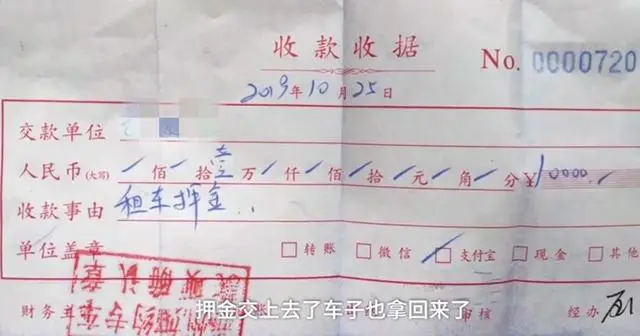 收款收据 No. 0000720
2019年10月25日
交款单位
人民币(大写) 佰 拾壹万 仟 佰 拾 元 角 分 ¥10000.
收款事由 租车押金
单位盖章 转账 微信 支付宝 现金 其他
财务 审核 经办
押金交上去了车子也拿回来了